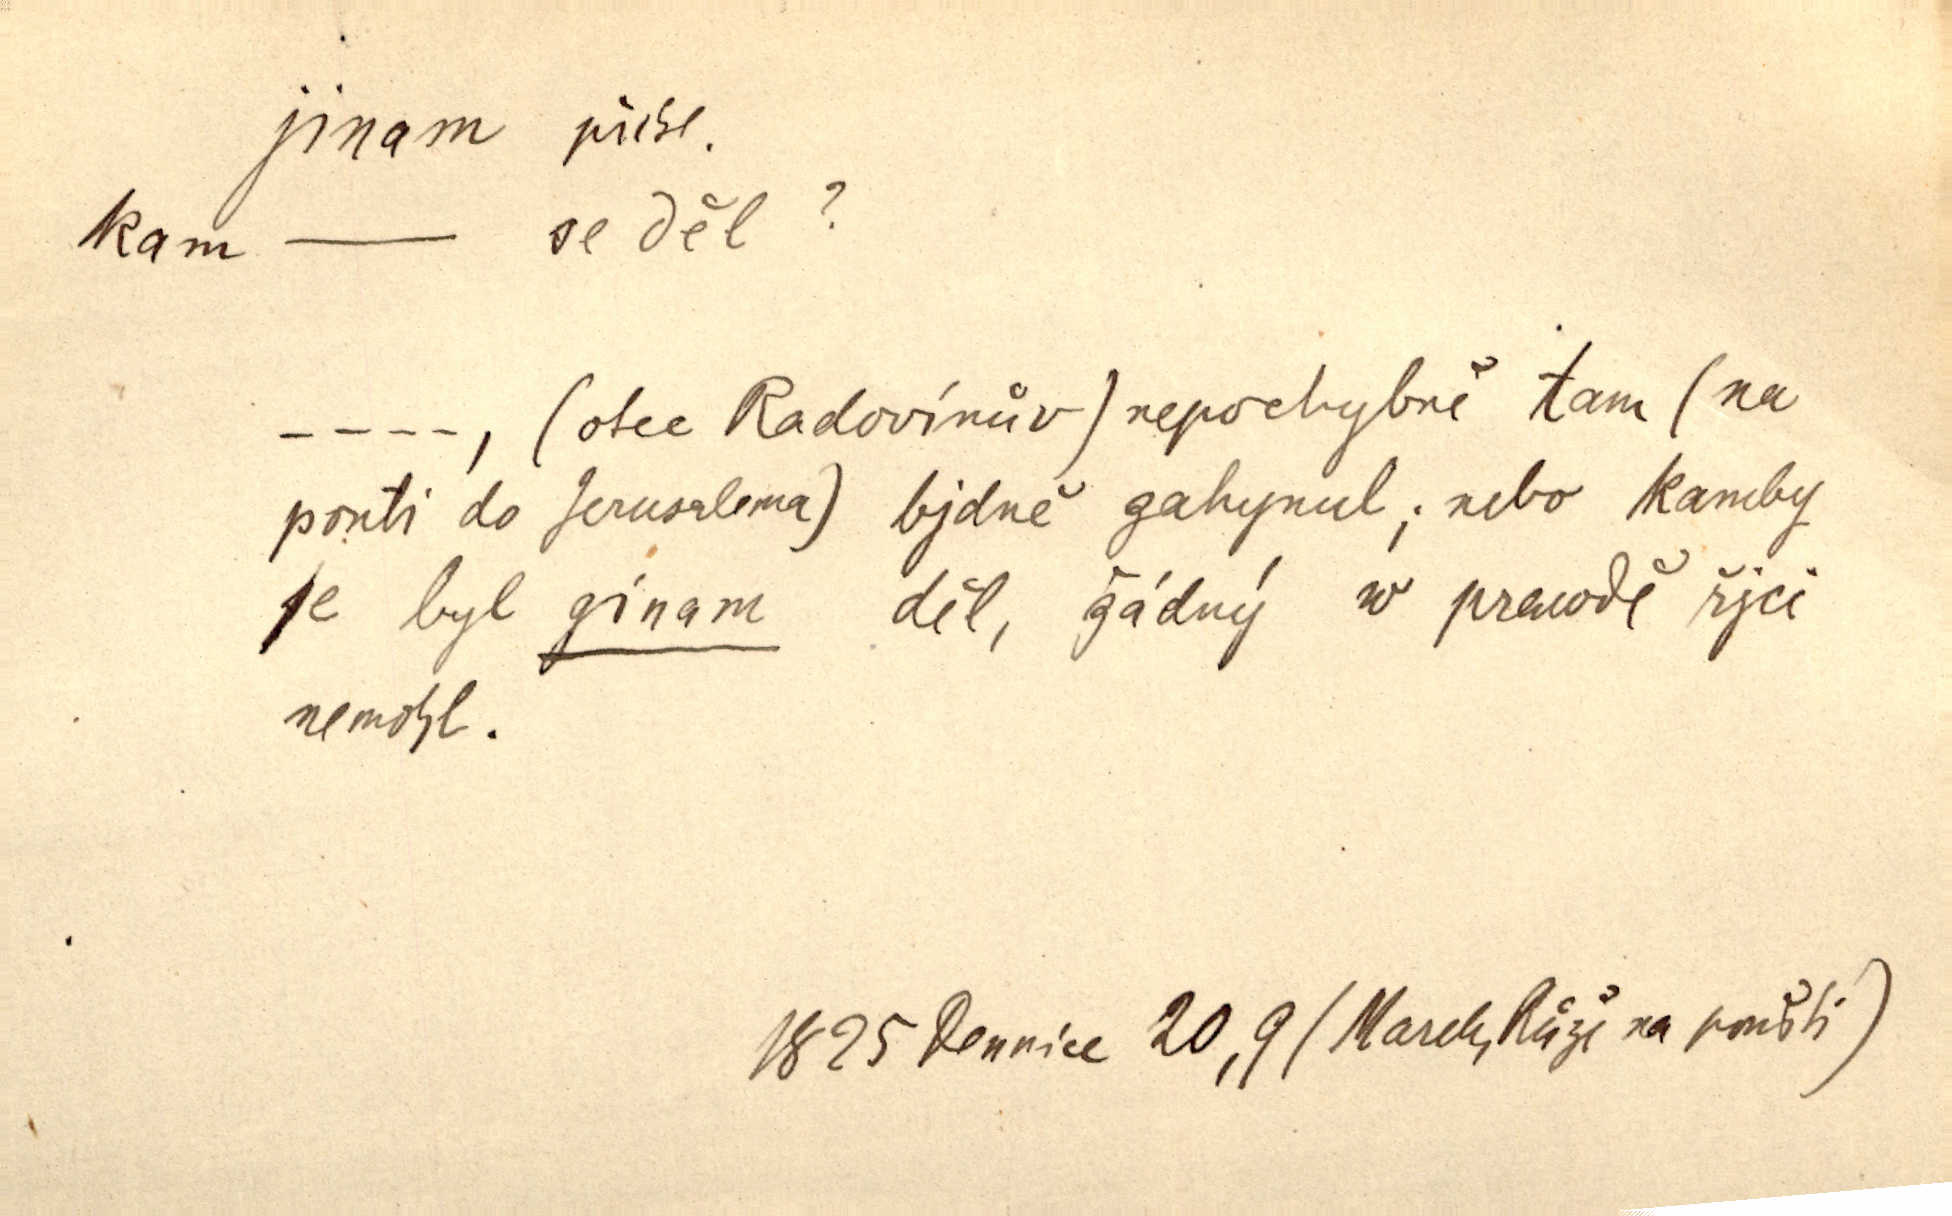 jinam přísl.
kam — se děl ?
----, (otec Radovínův) nepochybně tam (na
pouti do Jerusalema) bjdně zahynul; nebo kamby
se byl ginam děl, žádný w prawdě řjci
nemohl.
1825 Dennice 20,9 (Marek, Růže na poušti)